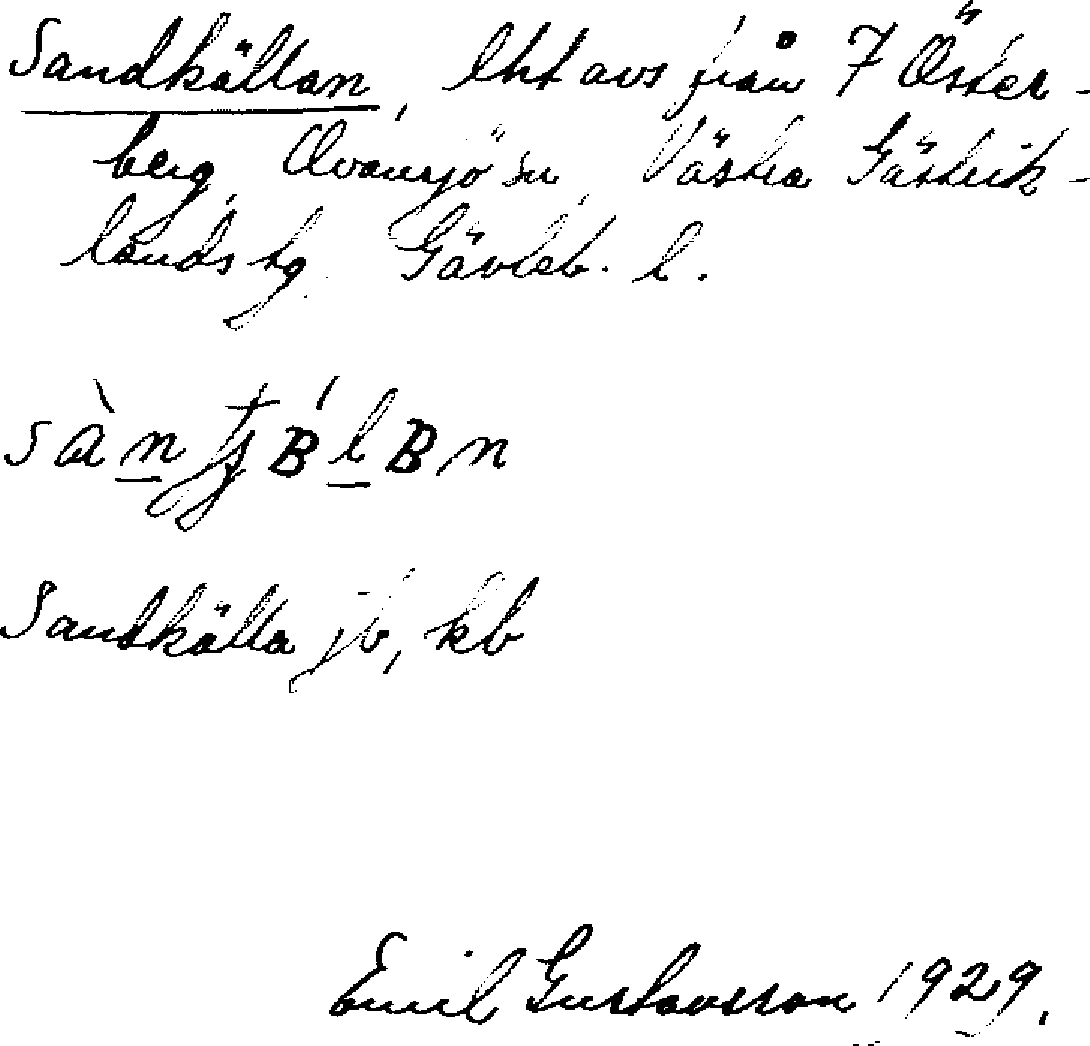 Sandkällan, lht avs från 7 Öster-
berg, Ovansjö sn, Västra Gästrik-
lands tg. Gävleb. l.
Sandkälla jb, kb
Emil Gustavsson 1929.